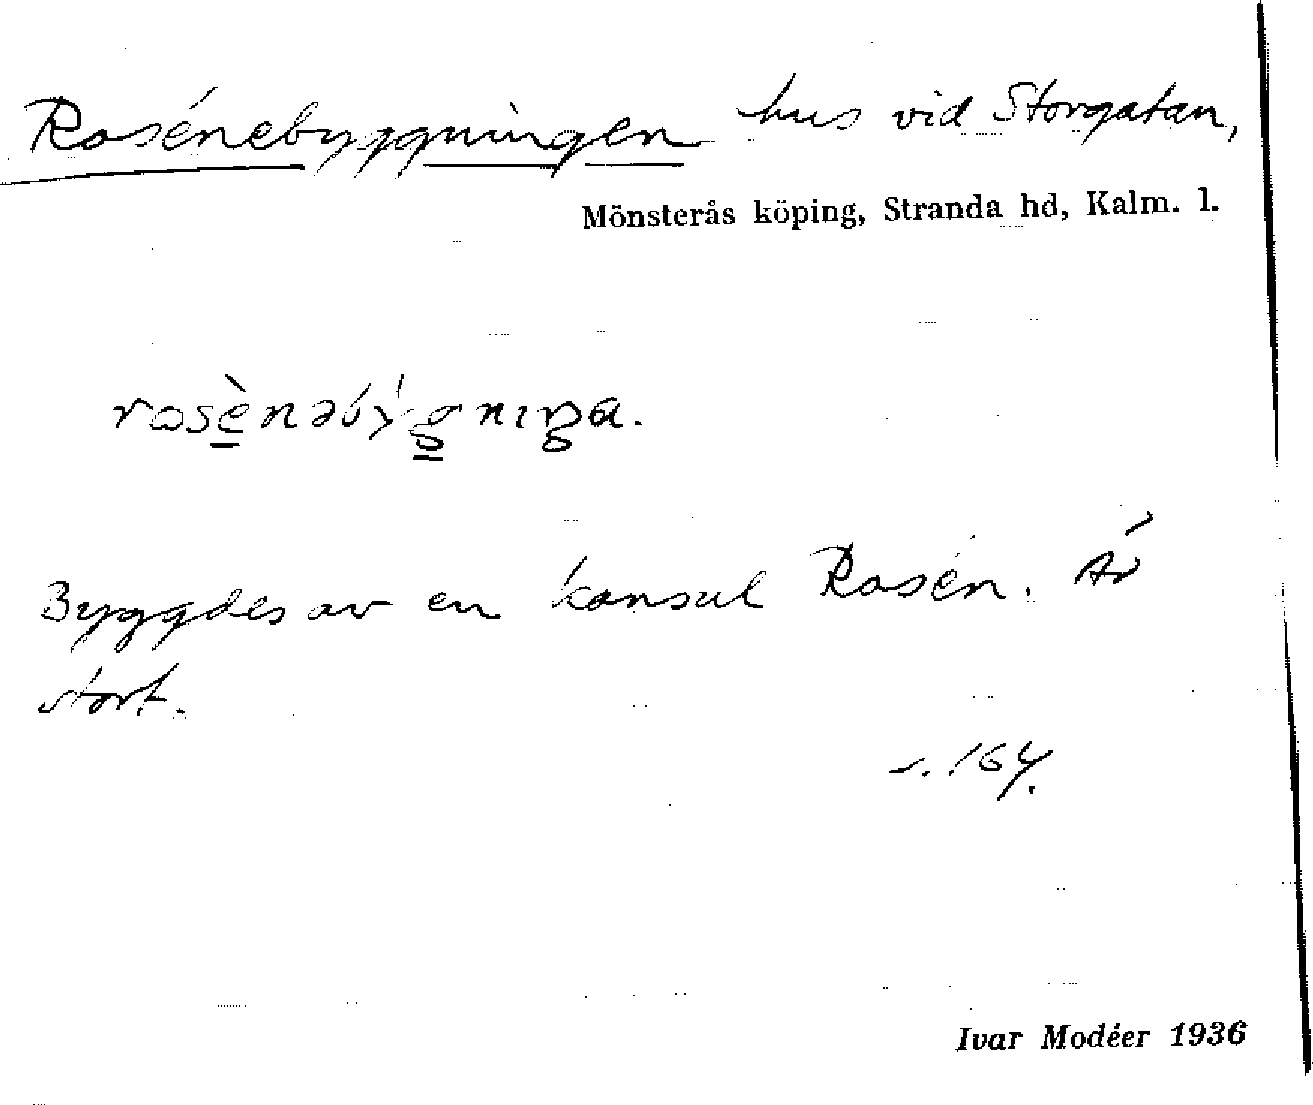 Rosénebyggningen hus vid Storgatan,
Mönsterås köping, Stranda hd, Kalm. l.
rosènəbýgnıŋa.
Byggdes av en konsul Rosén. Är
stort.
s. 164.
Ivar Modéer 1936